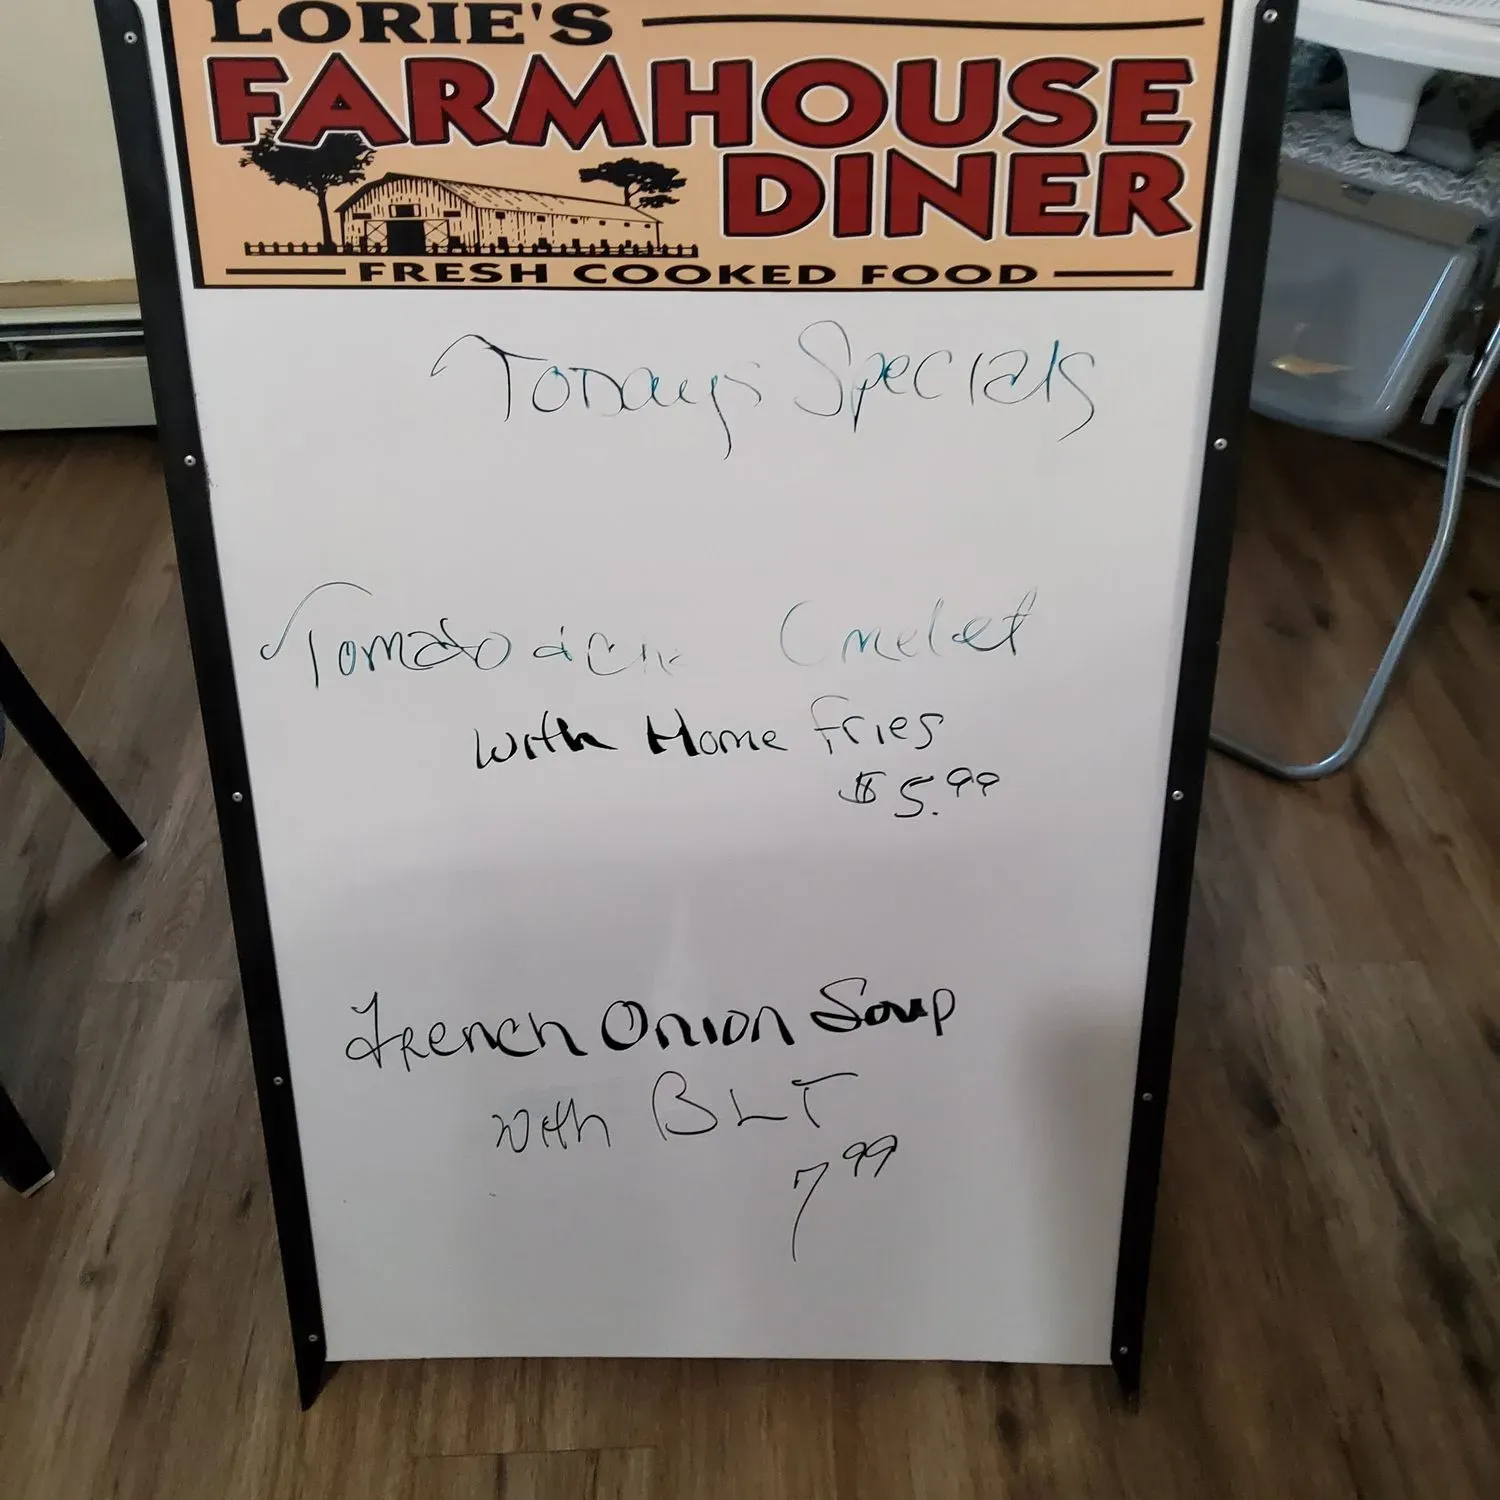 LORIE'S
FARMHOUSE
DINER
FRESH COOKED FOOD
Today's Specials
Tomato & Omelet
with Home fries
$5.99
French Onion Soup
with BLT
7.99